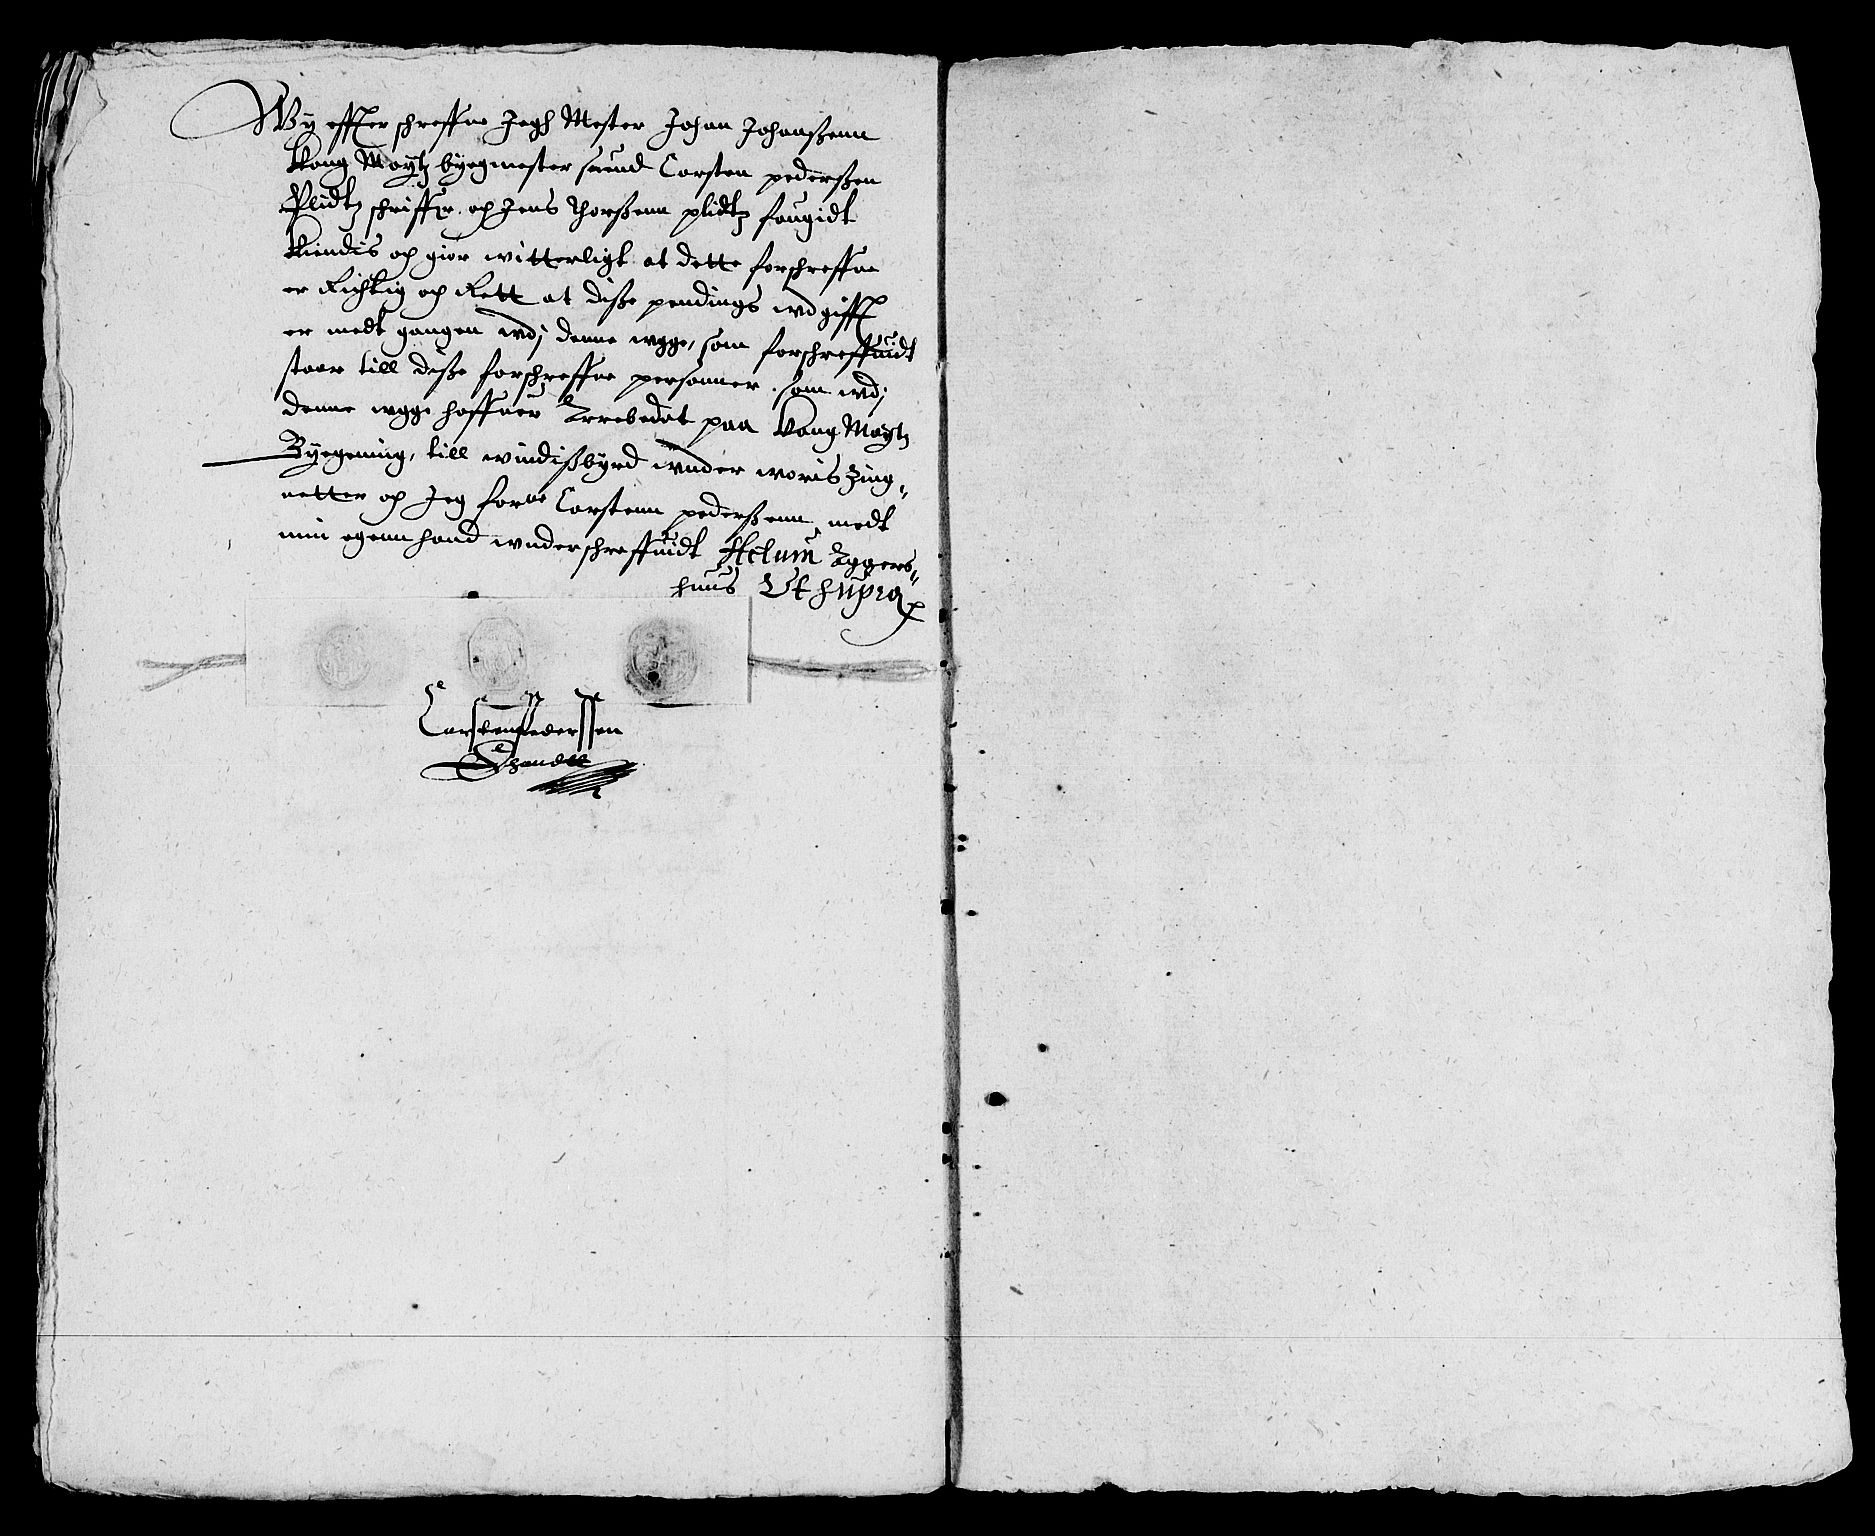 Wy effter schreffne Jegh Mester Johan Johanßenn
Kong Maytz bygmester suend Carsten pederßen
Slidtz schriffr. och Jens Thorßenn slidtz fougidt
Kiendis och giør witterligt at dette forschreffne
er Richtig och Rett at diße pendings wdgifft
er medt gangen wdj denne wgge, som forschreffuidt
staar till diße forschreffne personner. som wdj
denne wgge haffuer Arrebedat paa Kong Maytz
Byegening, till windißbyrd wnder woris Zing-
netter och Jeg forne Carstenn pederßenn medt
min egenn hand wnderschreffuidt Actum Aggers-
huus Ut supra
Carsten Pederssen
Ehandtt